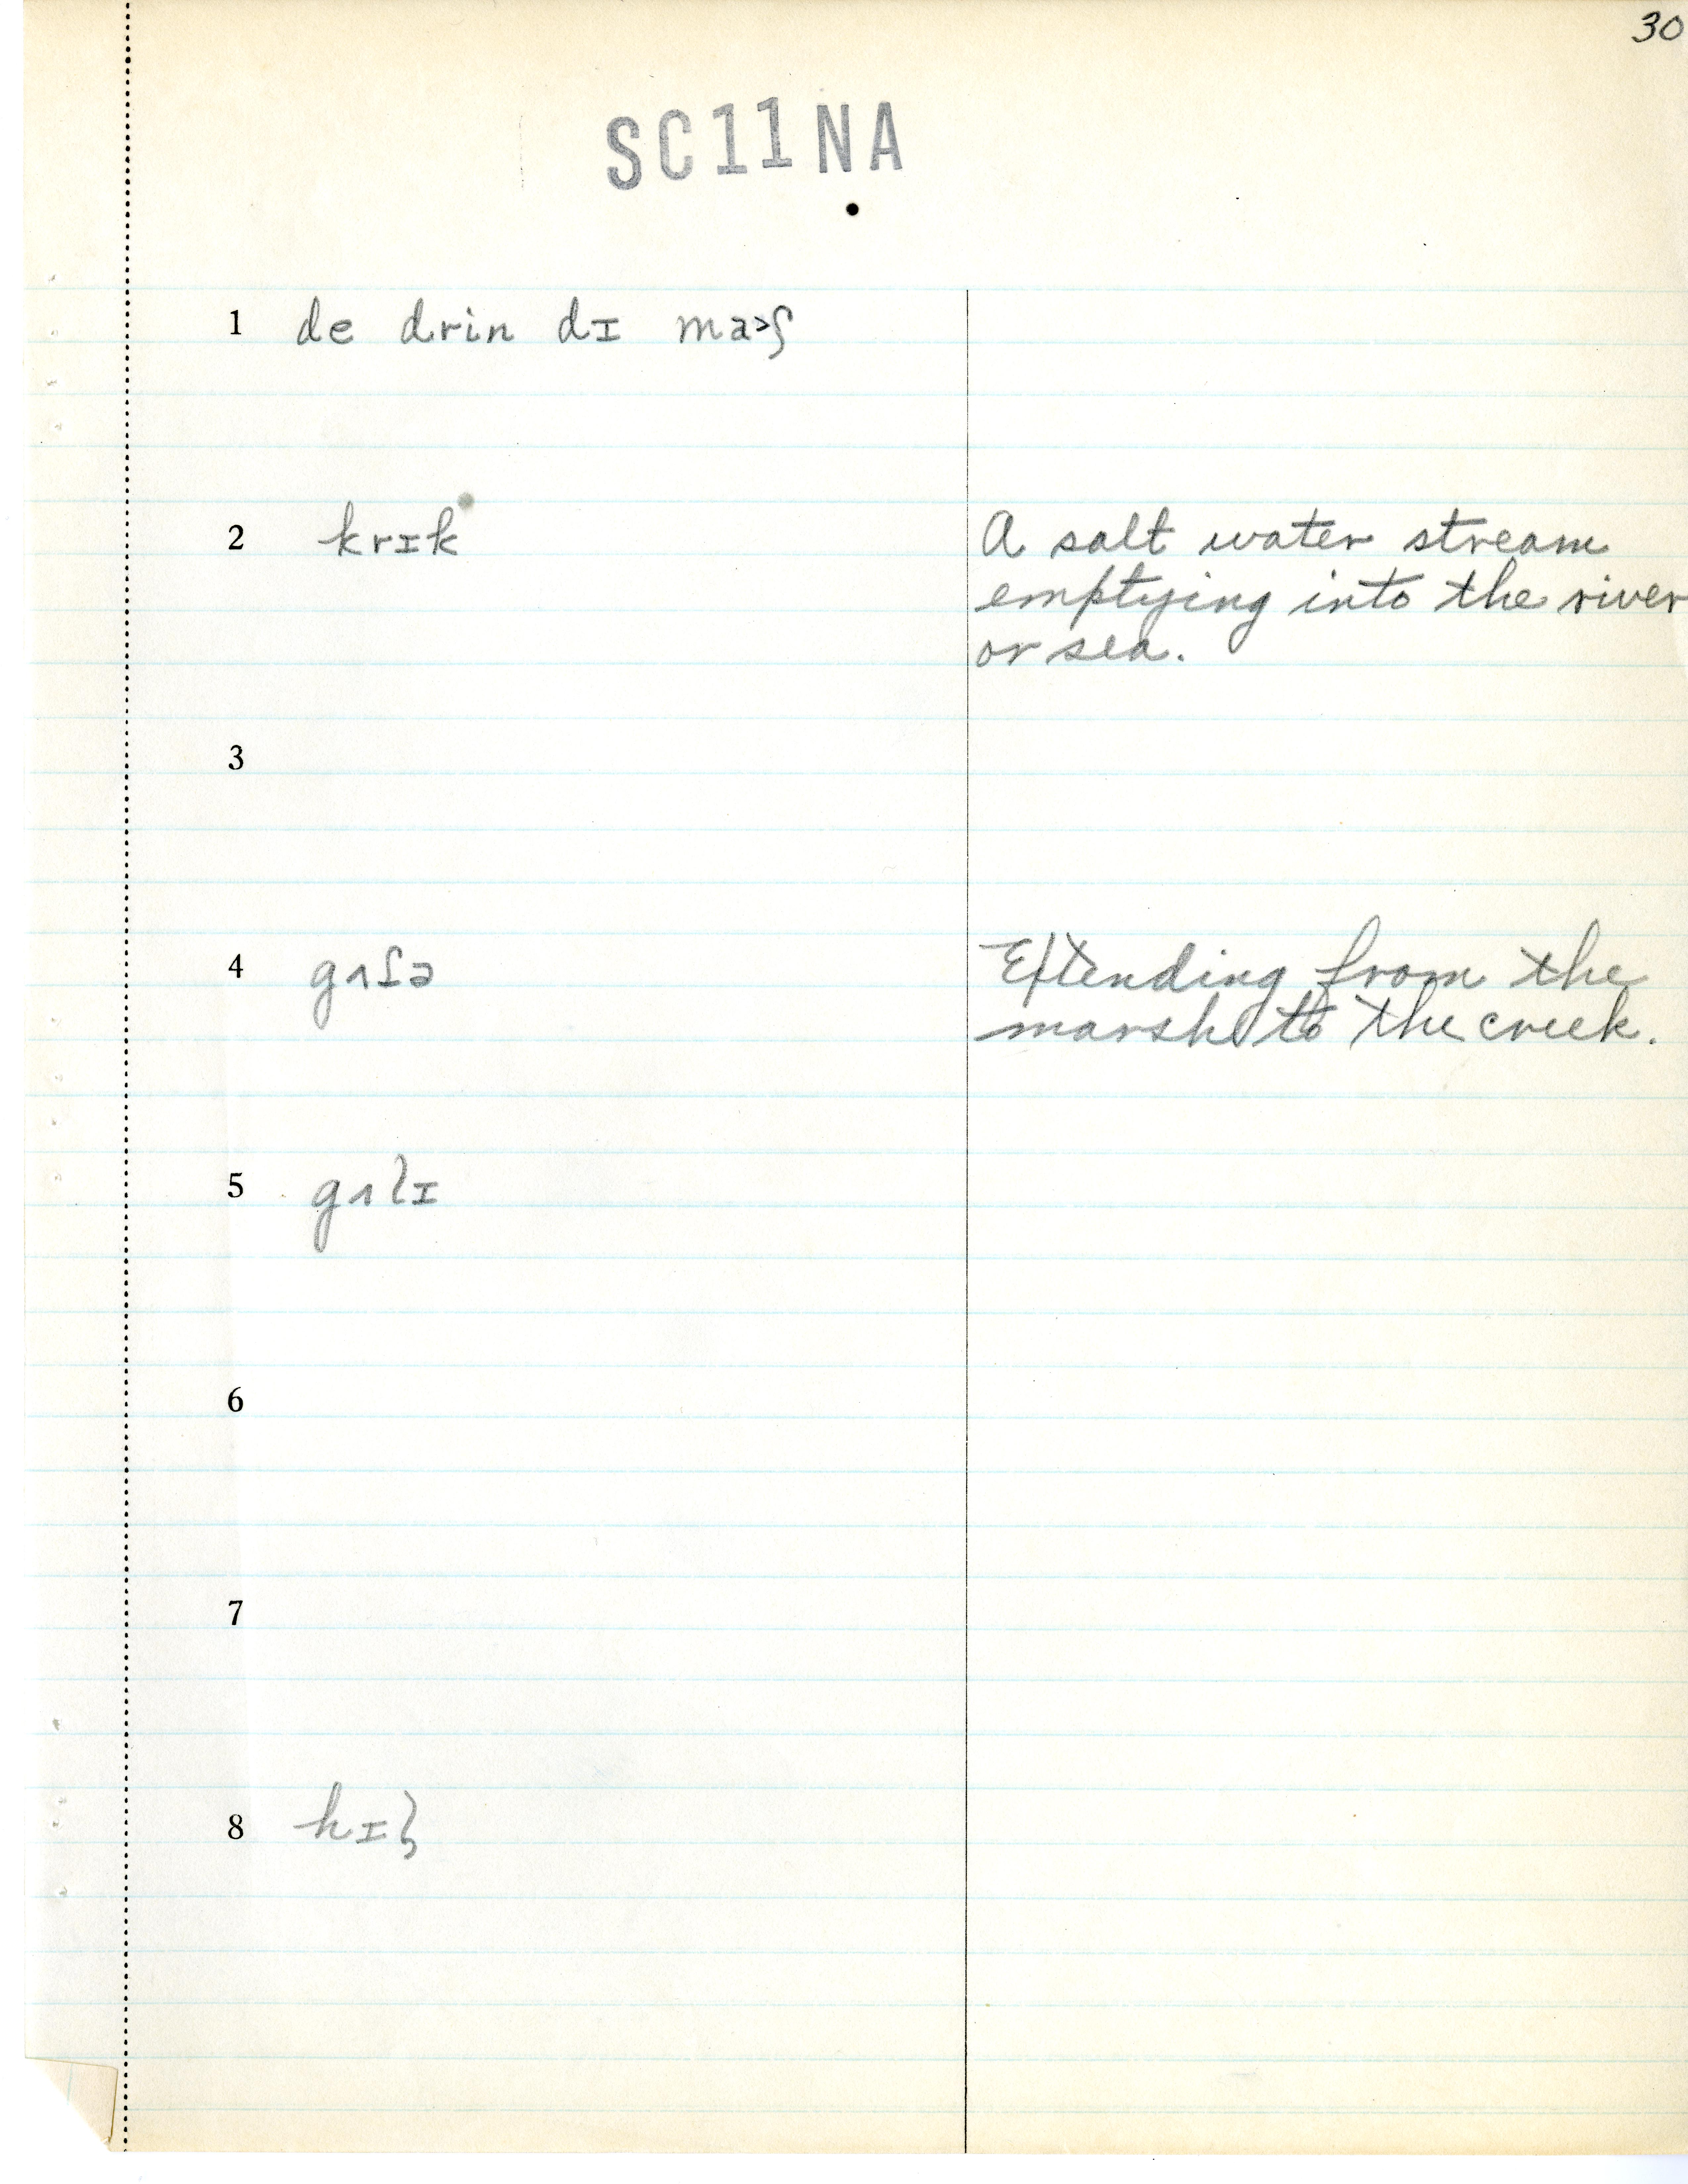 30
SC11NA
1 de drin dɪ ma>ʃ
2 krɪk
A salt water stream
emptying into the river
or sea.
3
4
Extending from the
marsh to the creek.
5 gʌlɪ
6
7
8